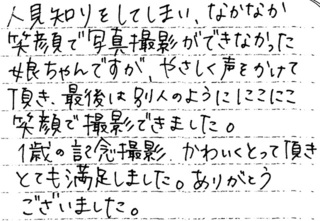 人見知りをしてしまい、なかなか
笑顔で写真撮影ができなかった
娘ちゃんですが、やさしく声をかけて
頂き、最後は別人のようににこにこ
笑顔で撮影できました。
1歳の記念撮影、かわいくとって頂き
とても満足しました。ありがとう
ございました。